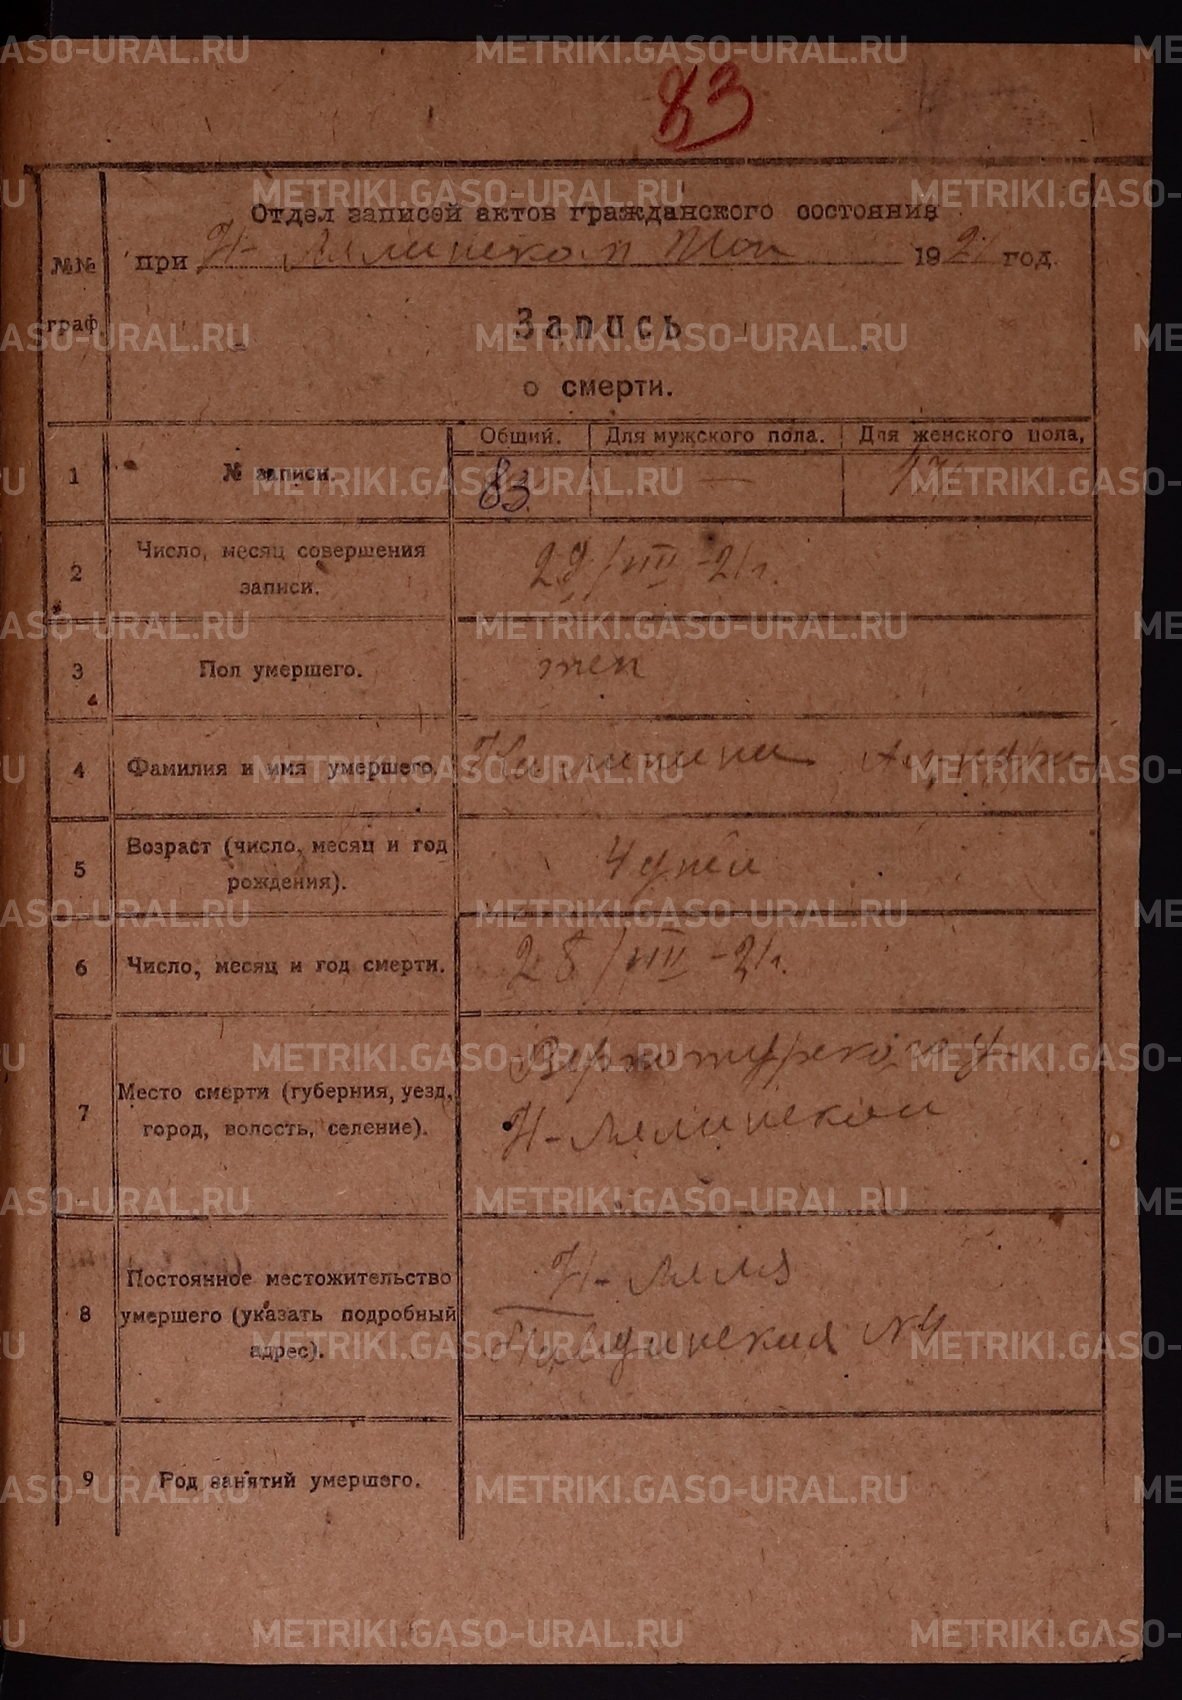 83
Отдел записей актов гражданского состояния
№№ граф.
при Н-Лялинском 1921 год.
Запись
о смерти.
Общий. Для мужского пола. Для женского пола,
1 № записи. 83 —
2 Число, месяц совершения записи. 29/VIII-21 г.
3 Пол умершего. жен
4 Фамилия и имя умершего. Калинина
5 Возраст (число, месяц и год рождения). 4 дней
6 Число, месяц и год смерти. 28/VIII-21 г.
7 Место смерти (губерния, уезд, город, волость, селение). Верхотурского у.
Н-Лялинской
8 Постоянное местожительство умершего (указать подробный адрес). Н-Ляля
№ 4
9 Род занятий умершего.
METRIKI.GASO-URAL.RU